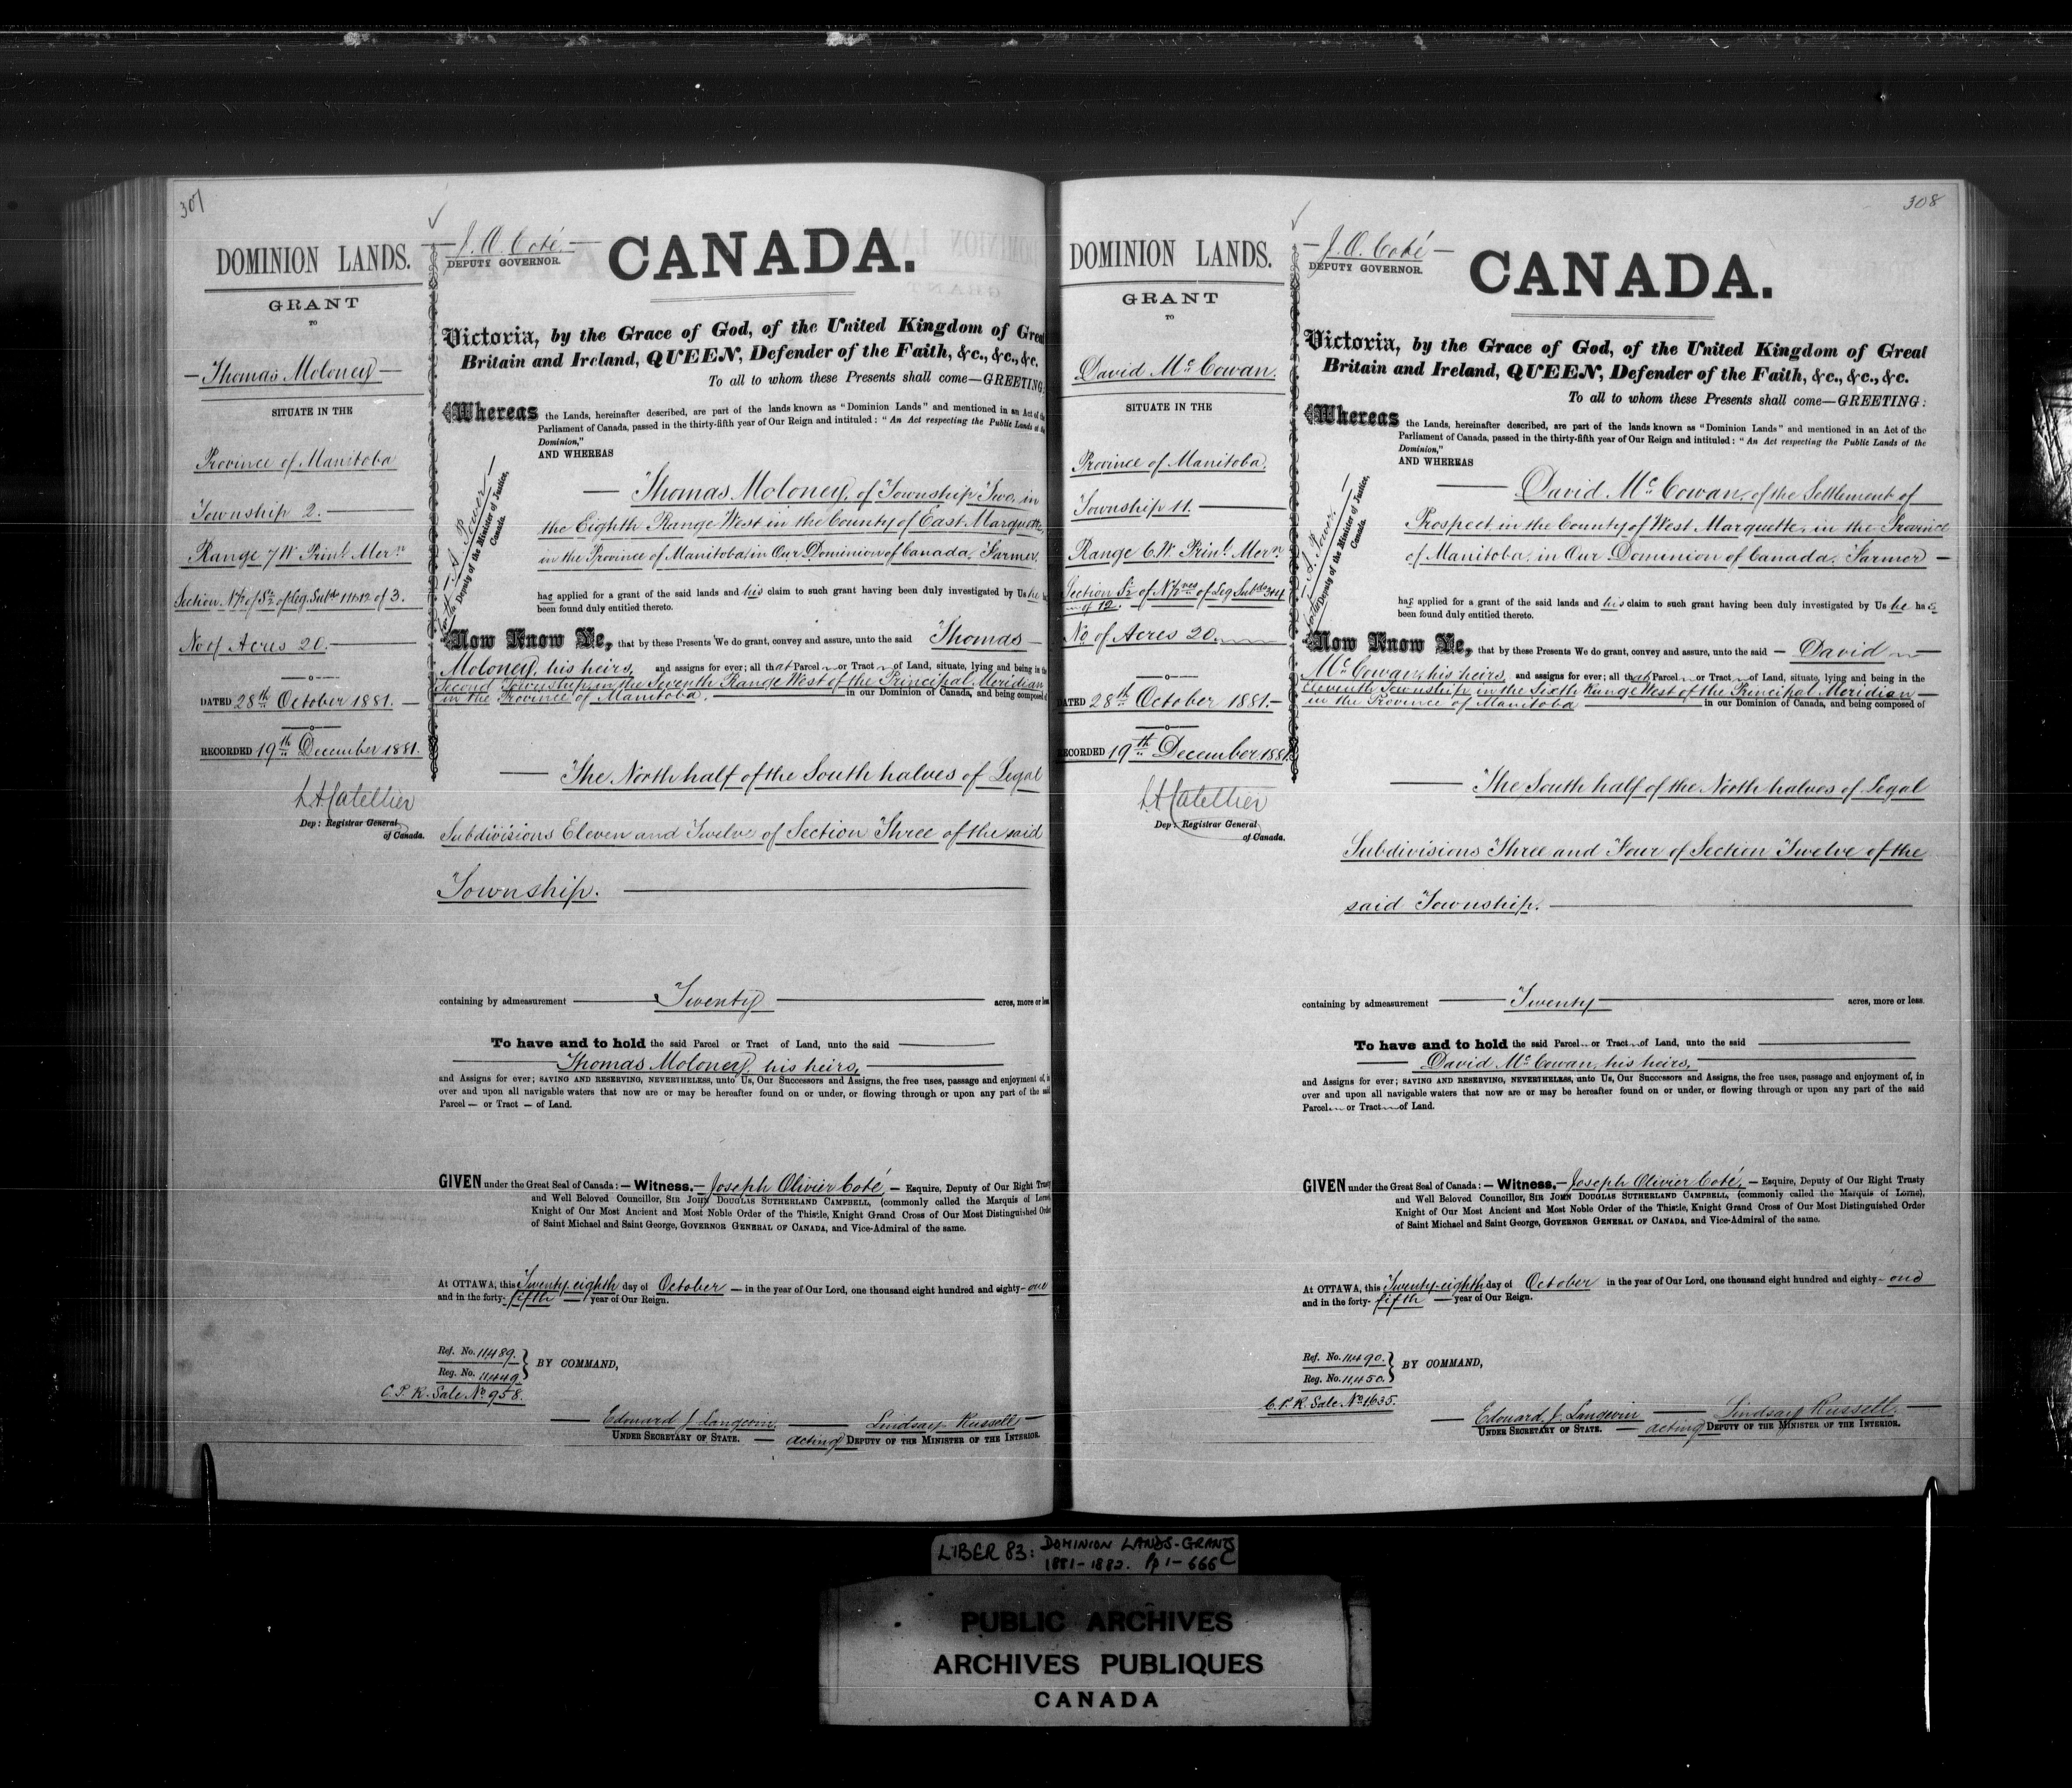 307
DOMINION LANDS.
GRANT
TO
Thomas Moloney
SITUATE IN THE
Province of Manitoba
Township 2.
Range 7 W Prinl. Mern
Section. N½ of S½ of Leg. Subds 11 & 12 of 3.
No of Acres 20.
DATED 28th October 1881.
RECORDED 19th December 1881.
L A Catellier
Dep: Registrar General
of Canada.
J. O. Coté
DEPUTY GOVERNOR.
CANADA.
A. Power
Deputy of the Minister of Justice,
Canada.
Victoria, by the Grace of God, of the United Kingdom of Great
Britain and Ireland, QUEEN, Defender of the Faith, &c., &c., &c.
To all to whom these Presents shall come—GREETING:
Whereas the Lands, hereinafter described, are part of the lands known as "Dominion Lands" and mentioned in an Act of the
Parliament of Canada, passed in the thirty-fifth year of Our Reign and intituled: "An Act respecting the Public Lands of the
Dominion,"
AND WHEREAS
Thomas Moloney, of Township Two, in
the Eighth Range West in the County of East Marquette,
in the Province of Manitoba, in Our Dominion of Canada, Farmer,
has applied for a grant of the said lands and his claim to such grant having been duly investigated by Us he has
been found duly entitled thereto.
Now Know Ye, that by these Presents We do grant, convey and assure, unto the said Thomas
Moloney, his heirs, and assigns for ever; all that Parcel or Tract of Land, situate, lying and being in the
Second Township, in the Seventh Range West of the Principal Meridian
in the Province of Manitoba, in our Dominion of Canada, and being composed of
The North half of the South halves of Legal
Subdivisions Eleven and Twelve of Section Three of the said
Township.
containing by admeasurement Twenty acres, more or less.
To have and to hold the said Parcel or Tract of Land, unto the said
Thomas Moloney, his heirs,
and Assigns for ever; SAVING AND RESERVING, NEVERTHELESS, unto Us, Our Successors and Assigns, the free uses, passage and enjoyment of, in
over and upon all navigable waters that now are or may be hereafter found on or under, or flowing through or upon any part of the said
Parcel — or Tract — of Land.
GIVEN under the Great Seal of Canada:—Witness,—Joseph Olivier Coté,—Esquire, Deputy of Our Right Trusty
and Well Beloved Councillor, SIR JOHN DOUGLAS SUTHERLAND CAMPBELL, (commonly called the Marquis of Lorne),
Knight of Our Most Ancient and Most Noble Order of the Thistle, Knight Grand Cross of Our Most Distinguished Order
of Saint Michael and Saint George, GOVERNOR GENERAL OF CANADA, and Vice-Admiral of the same.
At OTTAWA, this Twenty-eighth day of October — in the year of Our Lord, one thousand eight hundred and eighty-one
and in the forty-fifth year of Our Reign.
Ref. No. 11489.
Reg. No. 11449.
BY COMMAND,
C. P. R. Sale No 958.
Edouard J. Langevin
UNDER SECRETARY OF STATE.
Lindsay Russell
acting DEPUTY OF THE MINISTER OF THE INTERIOR.
308
DOMINION LANDS.
GRANT
TO
David McCowan.
SITUATE IN THE
Province of Manitoba.
Township 11.
Range 6 W. Prinl. Mern
Section S½ of N½ves of Leg Subds 3 & 4
of 12.
No of Acres 20.
DATED 28th October 1881.
RECORDED 19th December 1881.
L A Catellier
Dep: Registrar General
of Canada.
J. O. Coté
DEPUTY GOVERNOR.
CANADA.
A. Power
Deputy of the Minister of Justice,
Canada.
Victoria, by the Grace of God, of the United Kingdom of Great
Britain and Ireland, QUEEN, Defender of the Faith, &c., &c., &c.
To all to whom these Presents shall come—GREETING:
Whereas the Lands, hereinafter described, are part of the lands known as "Dominion Lands" and mentioned in an Act of the
Parliament of Canada, passed in the thirty-fifth year of Our Reign and intituled: "An Act respecting the Public Lands of the
Dominion,"
AND WHEREAS
David McCowan, of the Settlement of
Prospect, in the County of West Marquette, in the Province
of Manitoba, in Our Dominion of Canada, Farmer
has applied for a grant of the said lands and his claim to such grant having been duly investigated by Us he has
been found duly entitled thereto.
Now Know Ye, that by these Presents We do grant, convey and assure, unto the said David
McCowan, his heirs, and assigns for ever; all that Parcel or Tract of Land, situate, lying and being in the
Eleventh Township, in the Sixth Range West of the Principal Meridian
in the Province of Manitoba in our Dominion of Canada, and being composed of
The South half of the North halves of Legal
Subdivisions Three and Four of Section Twelve of the
said Township.
containing by admeasurement Twenty acres, more or less.
To have and to hold the said Parcel or Tract of Land, unto the said
David McCowan, his heirs,
and Assigns for ever; SAVING AND RESERVING, NEVERTHELESS, unto Us, Our Successors and Assigns, the free uses, passage and enjoyment of, in
over and upon all navigable waters that now are or may be hereafter found on or under, or flowing through or upon any part of the said
Parcel or Tract of Land.
GIVEN under the Great Seal of Canada:—Witness,—Joseph Olivier Coté,—Esquire, Deputy of Our Right Trusty
and Well Beloved Councillor, SIR JOHN DOUGLAS SUTHERLAND CAMPBELL, (commonly called the Marquis of Lorne),
Knight of Our Most Ancient and Most Noble Order of the Thistle, Knight Grand Cross of Our Most Distinguished Order
of Saint Michael and Saint George, GOVERNOR GENERAL OF CANADA, and Vice-Admiral of the same.
At OTTAWA, this Twenty-eighth day of October in the year of Our Lord, one thousand eight hundred and eighty-one
and in the forty-fifth year of Our Reign.
Ref. No. 11490.
Reg. No. 11,450.
BY COMMAND,
C. P. R. Sale No 1635.
Edouard J. Langevin
UNDER SECRETARY OF STATE.
Lindsay Russell.
acting DEPUTY OF THE MINISTER OF THE INTERIOR.
LIBER 83: DOMINION LANDS-GRANTS
1881-1882. Pp 1-666
PUBLIC ARCHIVES
ARCHIVES PUBLIQUES
CANADA